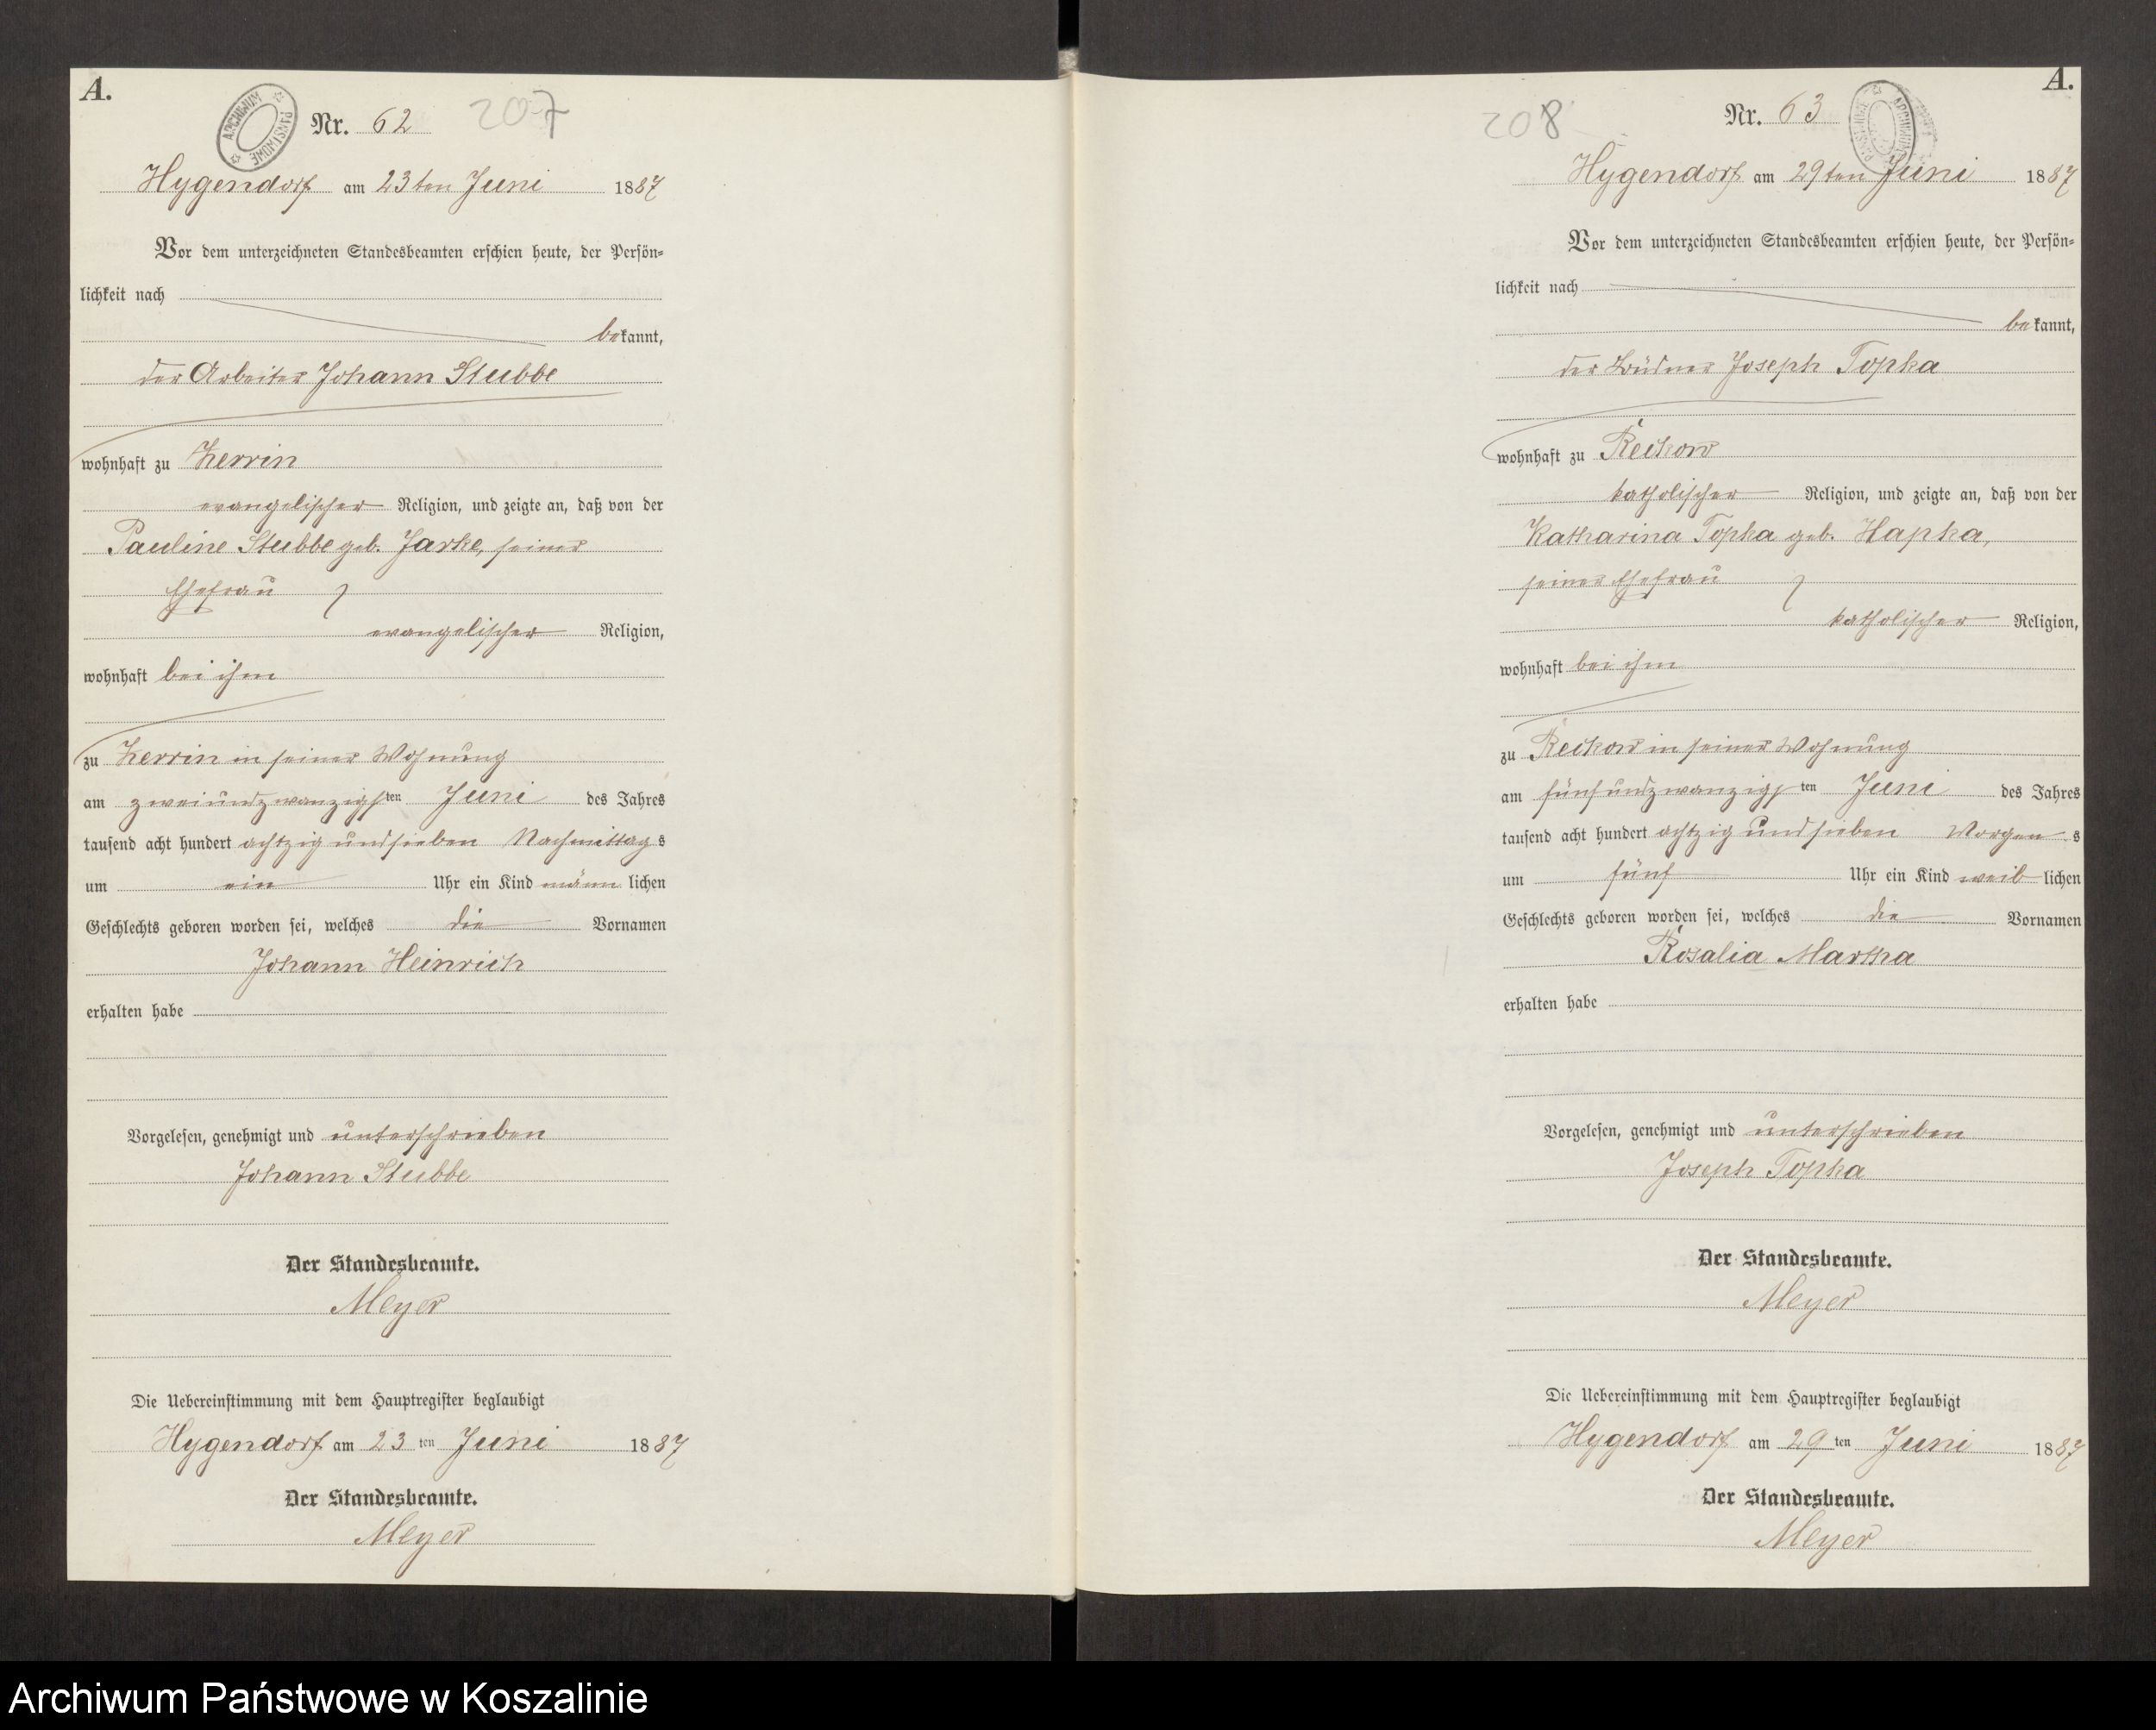 A.
ARCHIWUM PAŃSTWOWE
Nr. 62
207
Hygendorf am 23ten Juni 1887
Vor dem unterzeichneten Standesbeamten erschien heute, der Persön-
lichkeit nach
bekannt,
der Arbeiter Johann Stubbe
wohnhaft zu Zerrin
evangelischer Religion, und zeigte an, daß von der
Pauline Stubbe geb. Jarke, seiner
Ehefrau
evangelischer Religion,
wohnhaft bei ihm
zu Zerrin in seiner Wohnung
am zweiundzwanzigsten Juni des Jahres
tausend acht hundert achtzig und sieben Nachmittags
um ein Uhr ein Kind männlichen
Geschlechts geboren worden sei, welches die Vornamen
Johann Heinrich
erhalten habe
Vorgelesen, genehmigt und unterschrieben
Johann Stubbe
Der Standesbeamte.
Meyer
Die Uebereinstimmung mit dem Hauptregister beglaubigt
Hygendorf am 23 ten Juni 1887
Der Standesbeamte.
Meyer
A.
208
Nr. 63
ARCHIWUM PAŃSTWOWE
Hygendorf am 29ten Juni 1887
Vor dem unterzeichneten Standesbeamten erschien heute, der Persön-
lichkeit nach
bekannt,
der Büdner Joseph Topka
wohnhaft zu Reckow
katholischer Religion, und zeigte an, daß von der
Katharina Topka geb. Hapka,
seiner Ehefrau
katholischer Religion,
wohnhaft bei ihm
zu Reckow in seiner Wohnung
am fünfundzwanzigsten Juni des Jahres
tausend acht hundert achtzig und sieben Morgens
um fünf Uhr ein Kind weiblichen
Geschlechts geboren worden sei, welches die Vornamen
Rosalia Martha
erhalten habe
Vorgelesen, genehmigt und unterschrieben
Joseph Topka
Der Standesbeamte.
Meyer
Die Uebereinstimmung mit dem Hauptregister beglaubigt
Hygendorf am 29 ten Juni 1887
Der Standesbeamte.
Meyer
Archiwum Państwowe w Koszalinie